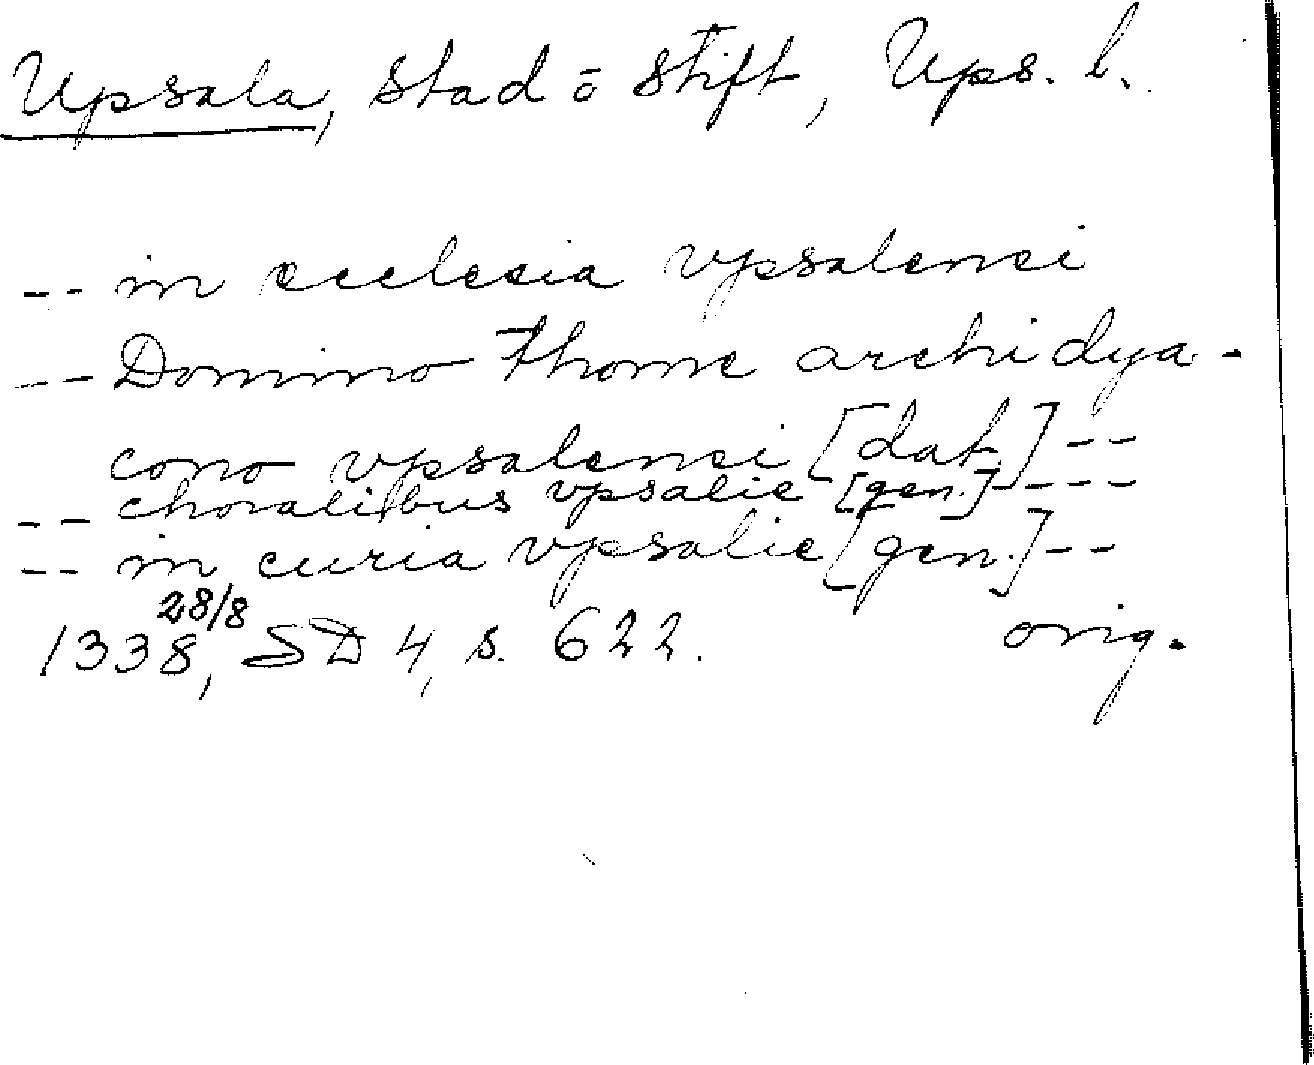 Upsala, stad o stift, Ups. l.
-- in ecclesia vpsalensi
-- Domino thome archidya-
cono vpsalensi [dat.] --
-- choralibus vpsalie [gen.] ----
-- in curia vpsalie [gen.] --
28/8
1338, SD 4, s. 622. orig.